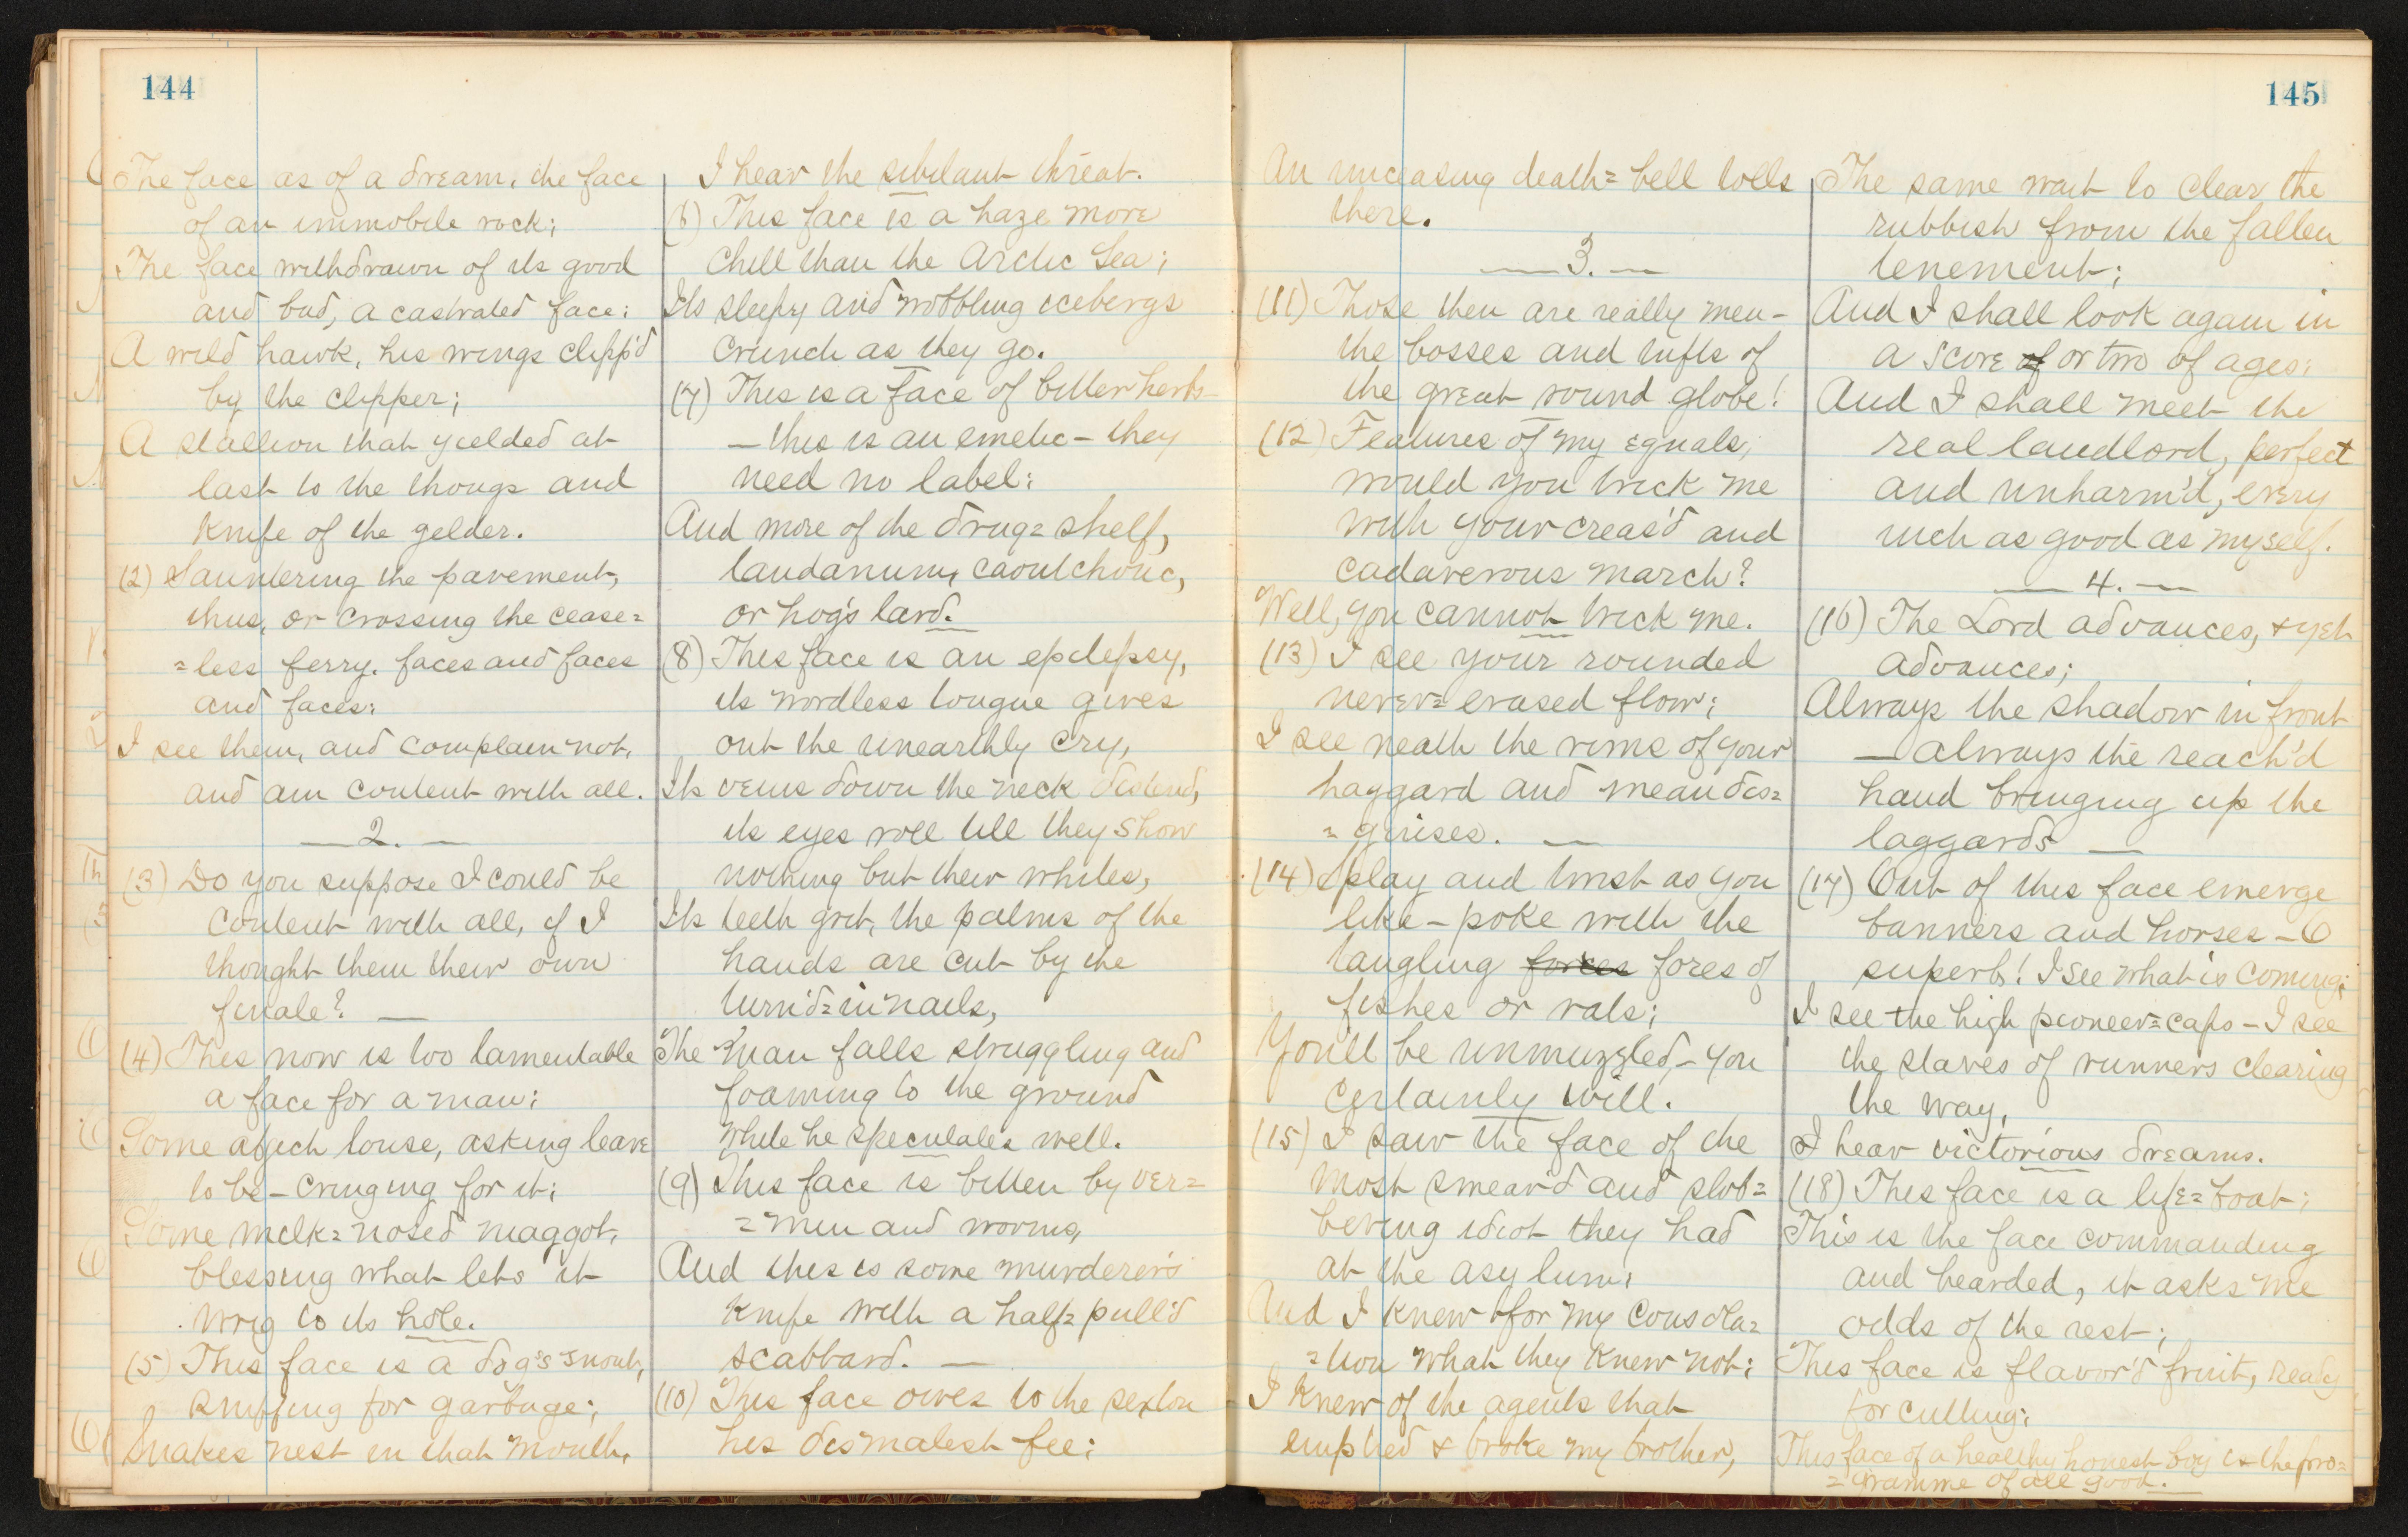 144
The face as of a dream, the face
of an immobile rock;
The face withdrawn of its good
and bad, a castrated face;
A wild hawk, his wings clipp'd
by the clipper;
A stallion that yielded at
last to the thongs and
knife of the gelder.
(2) Sauntering the pavement,
thus, or crossing the cease=
=less ferry, faces and faces
and faces:
I see them, and complain not,
and am content with all.
— 2. —
(3) Do you suppose I could be
content with all, if I
thought them their own
finale? —
(4) This now is too lamentable
a face for a man;
Some abject louse, asking leave
to be – cringing for it;
Some milk=nosed maggot,
blessing what lets it
wrig to its hole.
(5) This face is a dog's snout,
sniffing for garbage;
Snakes nest in that mouth,
I hear the sibilant threat.
(6) This face is a haze more
chill than the Arctic Sea;
Its sleepy and wobbling icebergs
crunch as they go.
(7) This is a face of bitter herbs
– this is an emetic – they
need no label;
And more of the drug=shelf,
laudanum, caoutchouc,
or hog's lard.
(8) This face is an epilepsy,
its wordless tongue gives
out the unearthly cry,
Its veins down the neck distend,
its eyes roll till they show
nothing but their whites,
Its teeth grit, the palms of the
hands are cut by the
turn'd=in nails,
The man falls struggling and
foaming to the ground
while he speculates well.
(9) This face is bitten by ver=
=min and worms,
And this is some murderer's
knife with a half=pull'd
scabbard. —
(10) This face owes to the sexton
his dismalest fee;
145
An unceasing death=bell tolls
there.
— 3. —
(11) Those then are really men –
the bosses and tufts of
the great round globe!
(12) Features of my equals,
would you trick me
with your creas'd and
cadaverous march?
Well, you cannot trick me.
(13) I see your rounded
never=erased flow;
I see neath the rims of your
haggard and mean dis=
=guises. —
(14) Splay and twist as you
like – poke with the
tangling forces fores of
fishes or rats;
You'll be unmuzzled, – you
certainly will.
(15) I saw the face of the
most smear'd and slob=
bering idiot they had
at the asylum;
And I knew for my consola=
=tion what they knew not;
I knew of the agents that
emptied & broke my brother,
The same wait to clear the
rubbish from the fallen
tenement;
And I shall look again in
a score of or two of ages;
And I shall meet the
real landlord, perfect
and unharm'd, every
inch as good as myself.
— 4. —
(16) The Lord advances, & yet
advances;
Always the shadow in front
– always the reach'd
hand bringing up the
laggards —
(17) Out of this face emerge
banners and horses – O
superb! I see what is coming;
I see the high pioneer=caps – I see
the staves of runners clearing
the way,
I hear victorious dreams.
(18) This face is a life=boat;
This is the face commanding
and bearded, it asks me
odds of the rest;
This face is flavor'd fruit, ready
for culling;
This face of a healthy honest boy is the pro=
=gramme of all good.